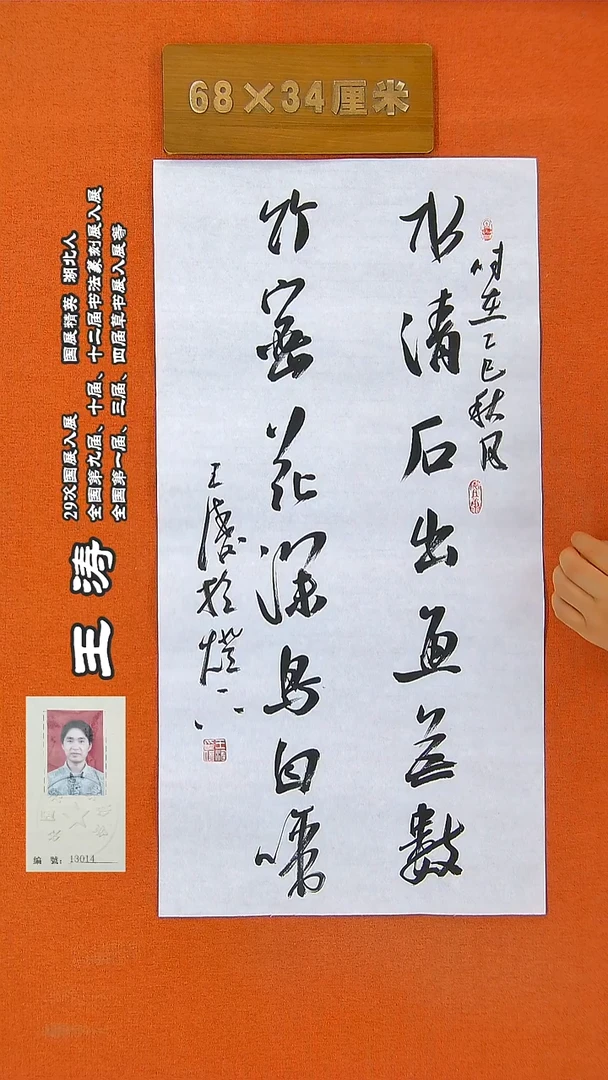 68×34厘米
水清石出魚無數
竹密花深鳥自啼
时在乙巳秋月
王濤於燈下
王涛
29次國展入展 國展精英 湖北人
全国第九届、十届、十二届书法篆刻展入展
全国第一届、三届、四届草书展入展等
编號：13014